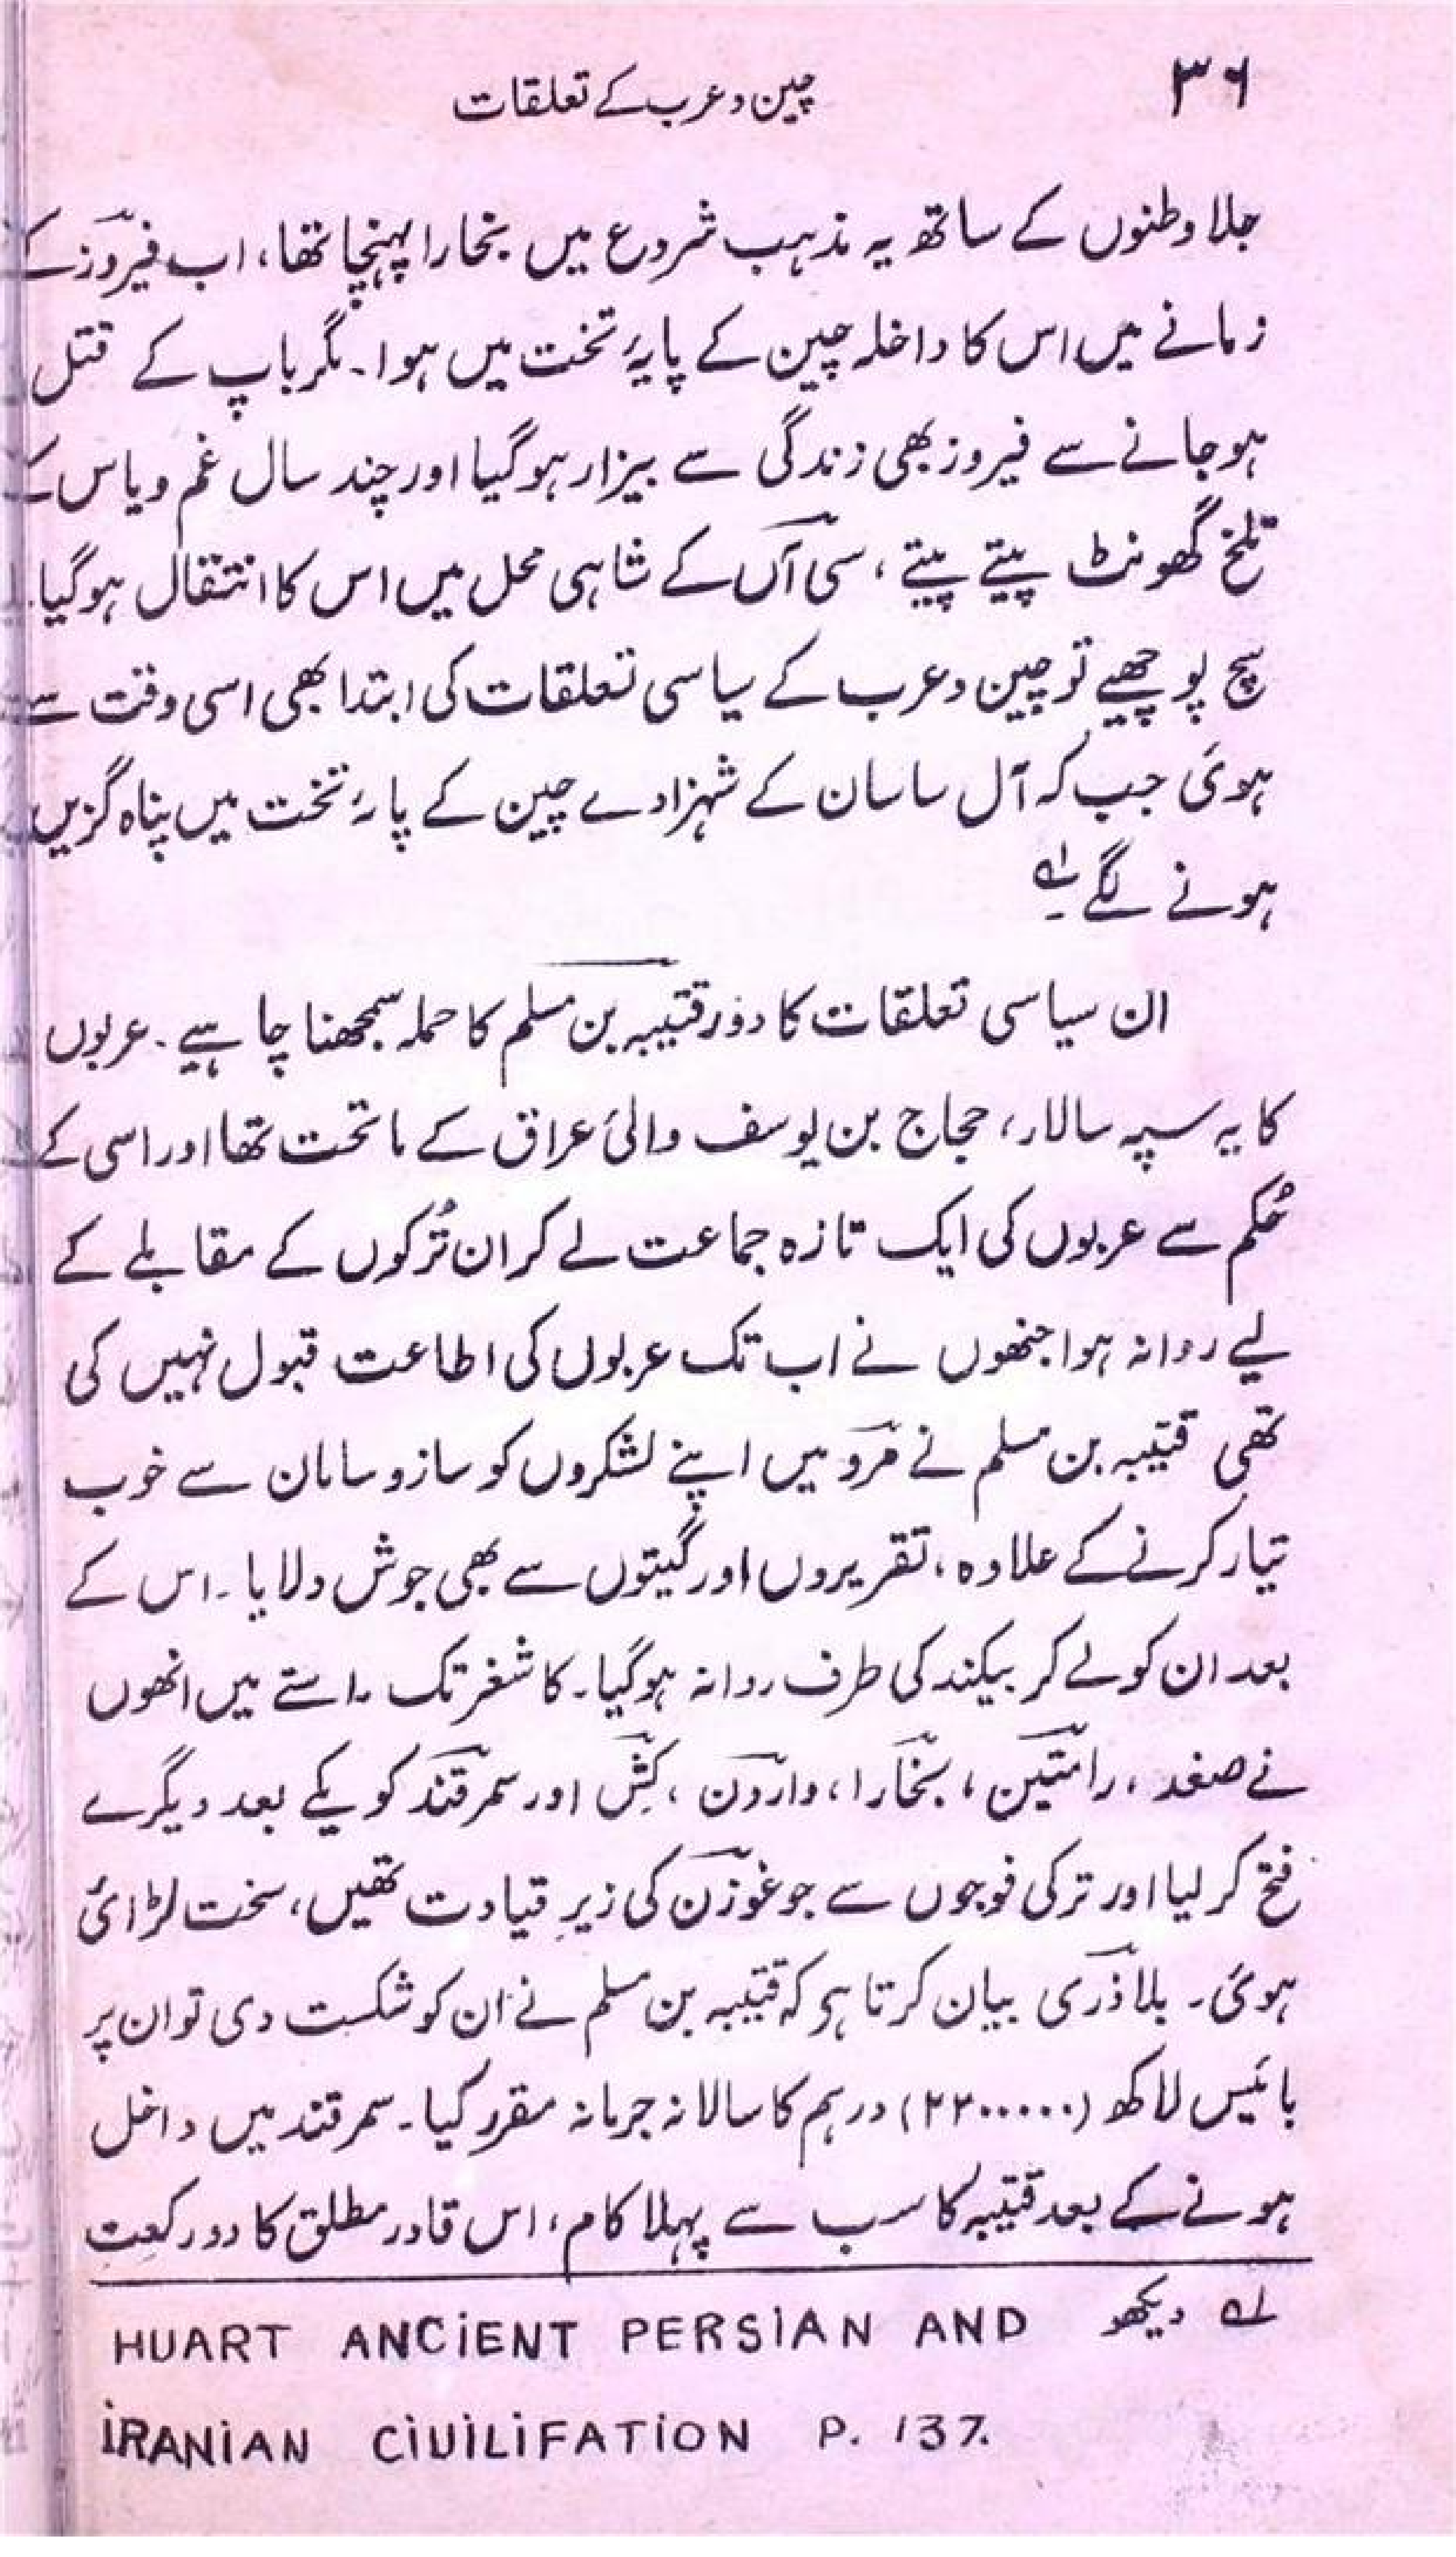 ۳۶
چین و عرب کے تعلقات
جلاوطنوں کے ساتھ یہ مذہب شروع میں بخارا پہنچا تھا، اب فیروز کے
زمانے میں اس کا داخلہ چین کے پایۂ تخت میں ہوا۔ مگر باپ کے قتل
ہوجانے سے فیروز بھی زندگی سے بیزار ہوگیا اور چند سال غم و یاس کے
تلخ گھونٹ پیتے پیتے، سی آن کے شاہی محل میں اس کا انتقال ہوگیا۔
سچ پوچھیے تو چین و عرب کے سیاسی تعلقات کی ابتدا بھی اسی وقت سے
ہوئ جب کہ آل ساسان کے شہزادے چین کے پایۂ تخت میں پناہ گزیں
ہونے لگے۔ لہ
ان سیاسی تعلقات کا دور قتیبہ بن مسلم کا حملہ سمجھنا چاہیے۔ عربوں
کا یہ سپہ سالار، حجاج بن یوسف والئ عراق کے ماتحت تھا اور اسی کے
حُکم سے عربوں کی ایک تازہ جماعت لے کر ان تُرکوں کے مقابلے کے
لیے روانہ ہوا جنھوں نے اب تک عربوں کی اطاعت قبول نہیں کی
تھی قتیبہ بن مسلم نے مرو میں اپنے لشکروں کو سازو سامان سے خوب
تیار کرنے کے علاوہ، تقریروں اور گیتوں سے بھی جوش دلایا۔ اس کے
بعد ان کو لے کر بیکند کی طرف روانہ ہوگیا۔ کاشغر تک راستے میں انھوں
نے صغد، رامتین، بخارا، واردن، کش اور سمرقند کو یکے بعد دیگرے
فتح کرلیا اور ترکی فوجوں سے جو غوزن کی زیرِ قیادت تھیں، سخت لڑائ
ہوئ۔ بلاذری بیان کرتا ہر کہ قتیبہ بن مسلم نے ان کو شکست دی تو ان پر
بائیس لاکھ (۲۲۰۰۰۰۰) درہم کا سالانہ جرمانہ مقرر کیا۔ سمرقند میں داخل
ہونے کے بعد قتیبہ کا سب سے پہلا کام، اس قادر مطلق کا دو رکعت
لہ دیکھو HUART ANCIENT PERSIAN AND
IRANIAN CIUILIFATION P. 137.